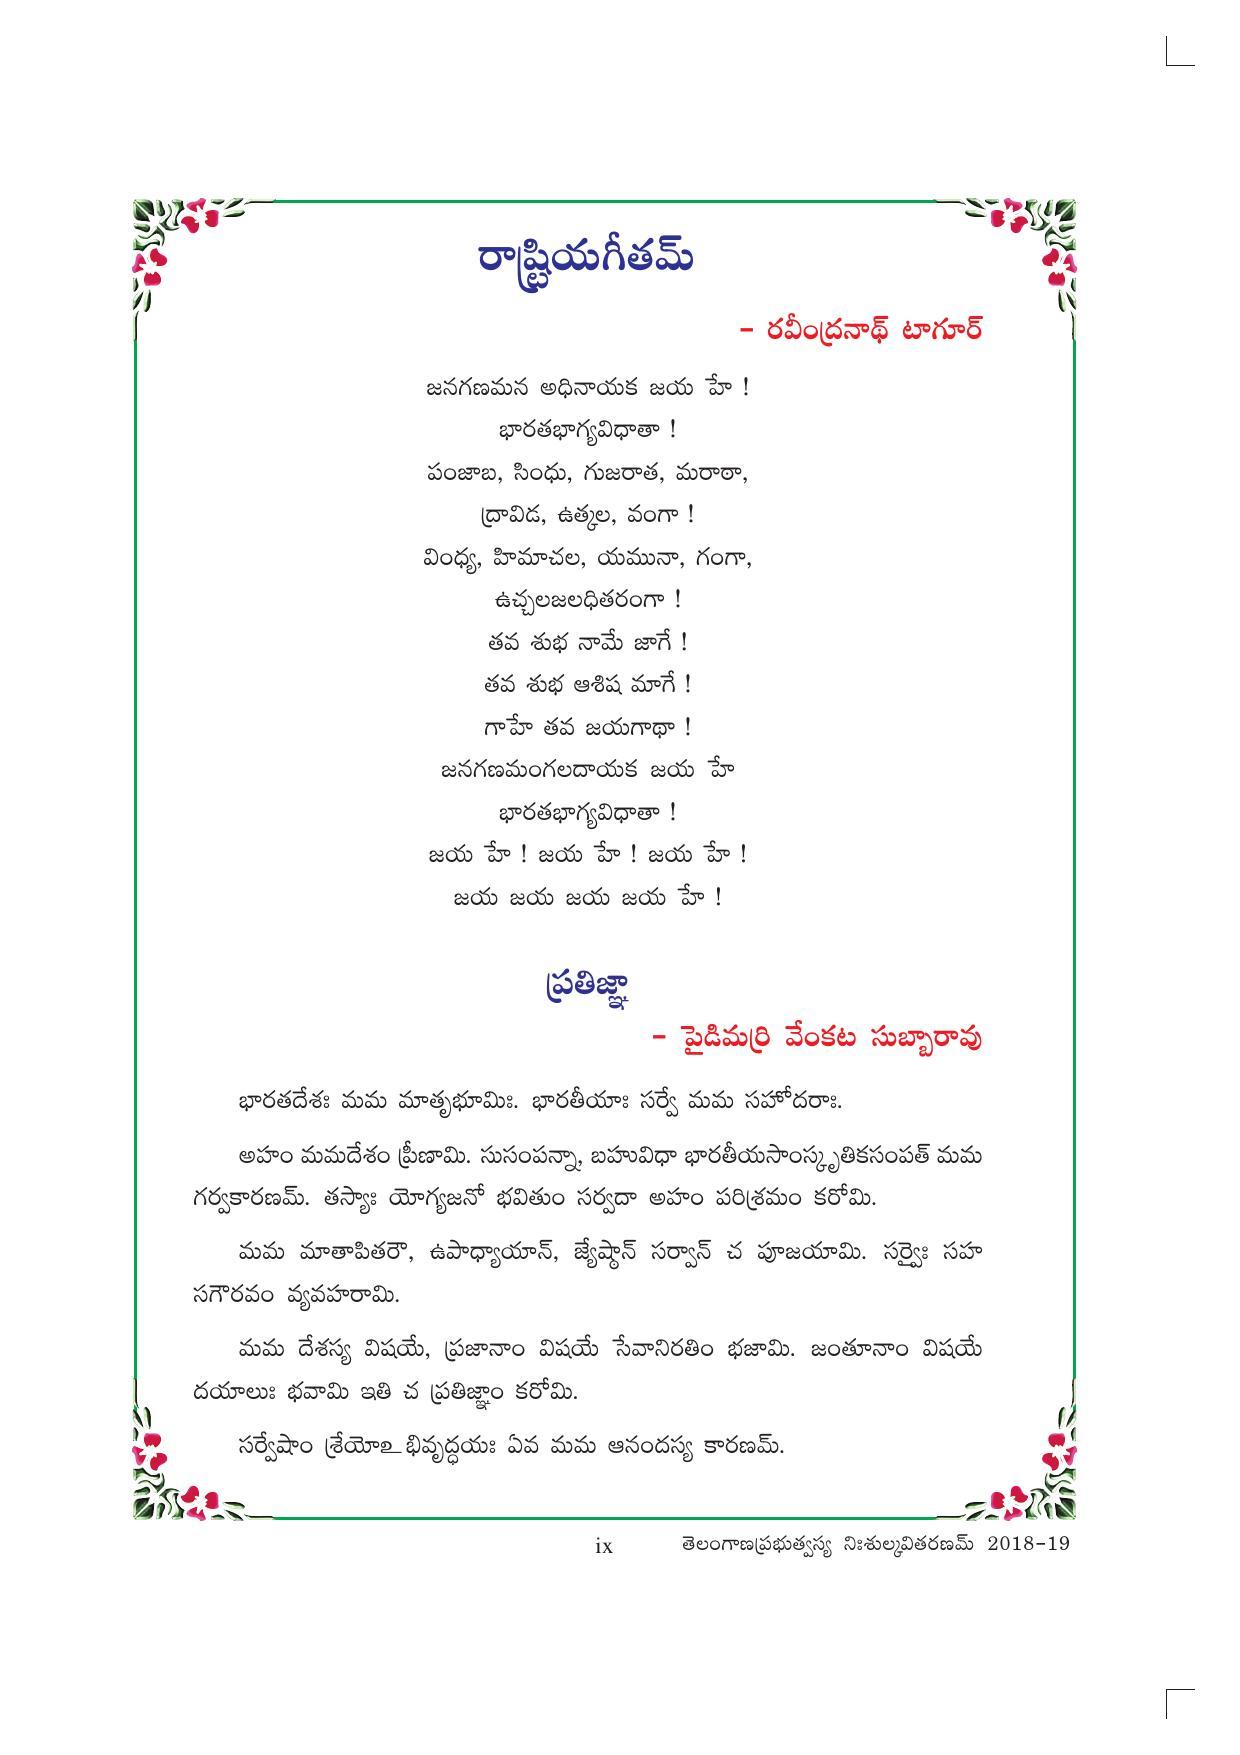 రాష్ట్రియగీతమ్
- రవీంద్రనాథ్ టాగూర్
జనగణమన అధినాయక జయ హే !
భారతభాగ్యవిధాతా !
పంజాబ, సింధు, గుజరాత, మరాఠా,
ద్రావిడ, ఉత్కల, వంగా !
వింధ్య, హిమాచల, యమునా, గంగా,
ఉచ్చలజలధితరంగా !
తవ శుభ నామే జాగే !
తవ శుభ ఆశిష మాగే !
గాహే తవ జయగాథా !
జనగణమంగలదాయక జయ హే
భారతభాగ్యవిధాతా !
జయ హే ! జయ హే ! జయ హే !
జయ జయ జయ జయ హే !
ప్రతిజ్ఞా
- పైడిమర్రి వేంకట సుబ్బారావు
భారతదేశః మమ మాతృభూమిః. భారతీయాః సర్వే మమ సహోదరాః.
అహం మమదేశం ప్రీణామి. సుసంపన్నా, బహువిధా భారతీయసాంస్కృతికసంపత్ మమ
గర్వకారణమ్. తస్యాః యోగ్యజనో భవితుం సర్వదా అహం పరిశ్రమం కరోమి.
మమ మాతాపితరౌ, ఉపాధ్యాయాన్, జ్యేష్ఠాన్ సర్వాన్ చ పూజయామి. సర్వైః సహ
సగౌరవం వ్యవహరామి.
మమ దేశస్య విషయే, ప్రజానాం విషయే సేవానిరతిం భజామి. జంతూనాం విషయే
దయాలుః భవామి ఇతి చ ప్రతిజ్ఞాం కరోమి.
సర్వేషాం శ్రేయోఽభివృద్ధయః ఏవ మమ ఆనందస్య కారణమ్.
ix తెలంగాణప్రభుత్వస్య నిఃశుల్కవితరణమ్ 2018-19